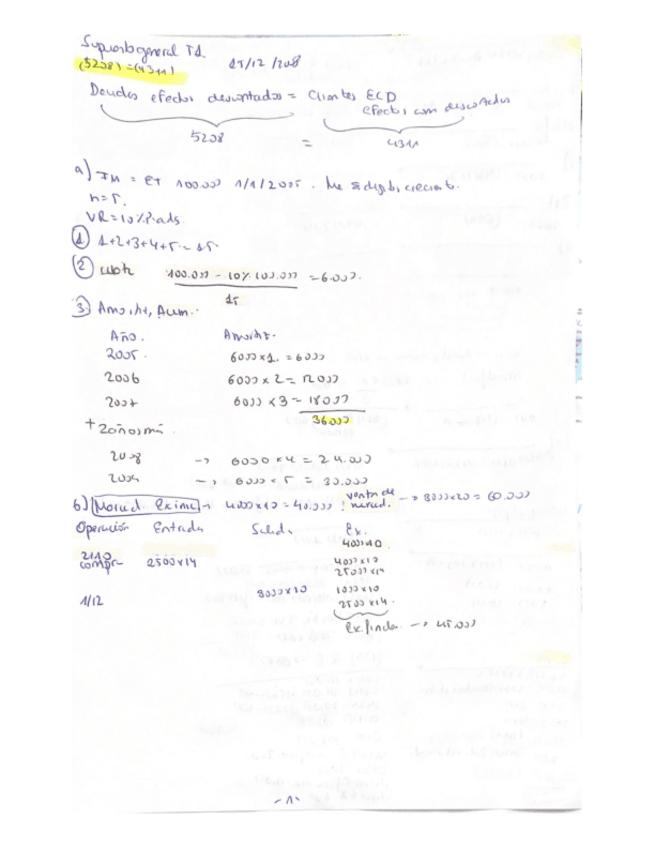 Supuesto general T1.
(5208) = (4311)
15/12/2008
Deudas efectos descontados = Clientes ECD
efectos com descontados
5208 = 4311
a) IM = ET 100.000 1/1/2005. Me dígitos creciente.
n=5.
VR=10% P. ads.
① 1+2+3+4+5=15
② 100.000 - 10% 100.000 = 6.000.
15
③ Amort. Acum.
Año. Amortiz.
2005. 6000x1. = 6000
2006 6000x2 = 12000
2007 6000x3 = 18000
36000
+ 2 años más.
2008 -> 6000x4 = 24.000
-> 6000x5 = 30.000
b) Mercad. Exim -> 4000x10=40.000 ! venta de mercad. -> 3000x20 = 60.000
Operación Entrada Salida Ex.
4000x10.
compr 2500x14 4000x10
2500x14
1/12 3000x10 1000x10
2500x14.
Ex. final -> 45.000
-1-